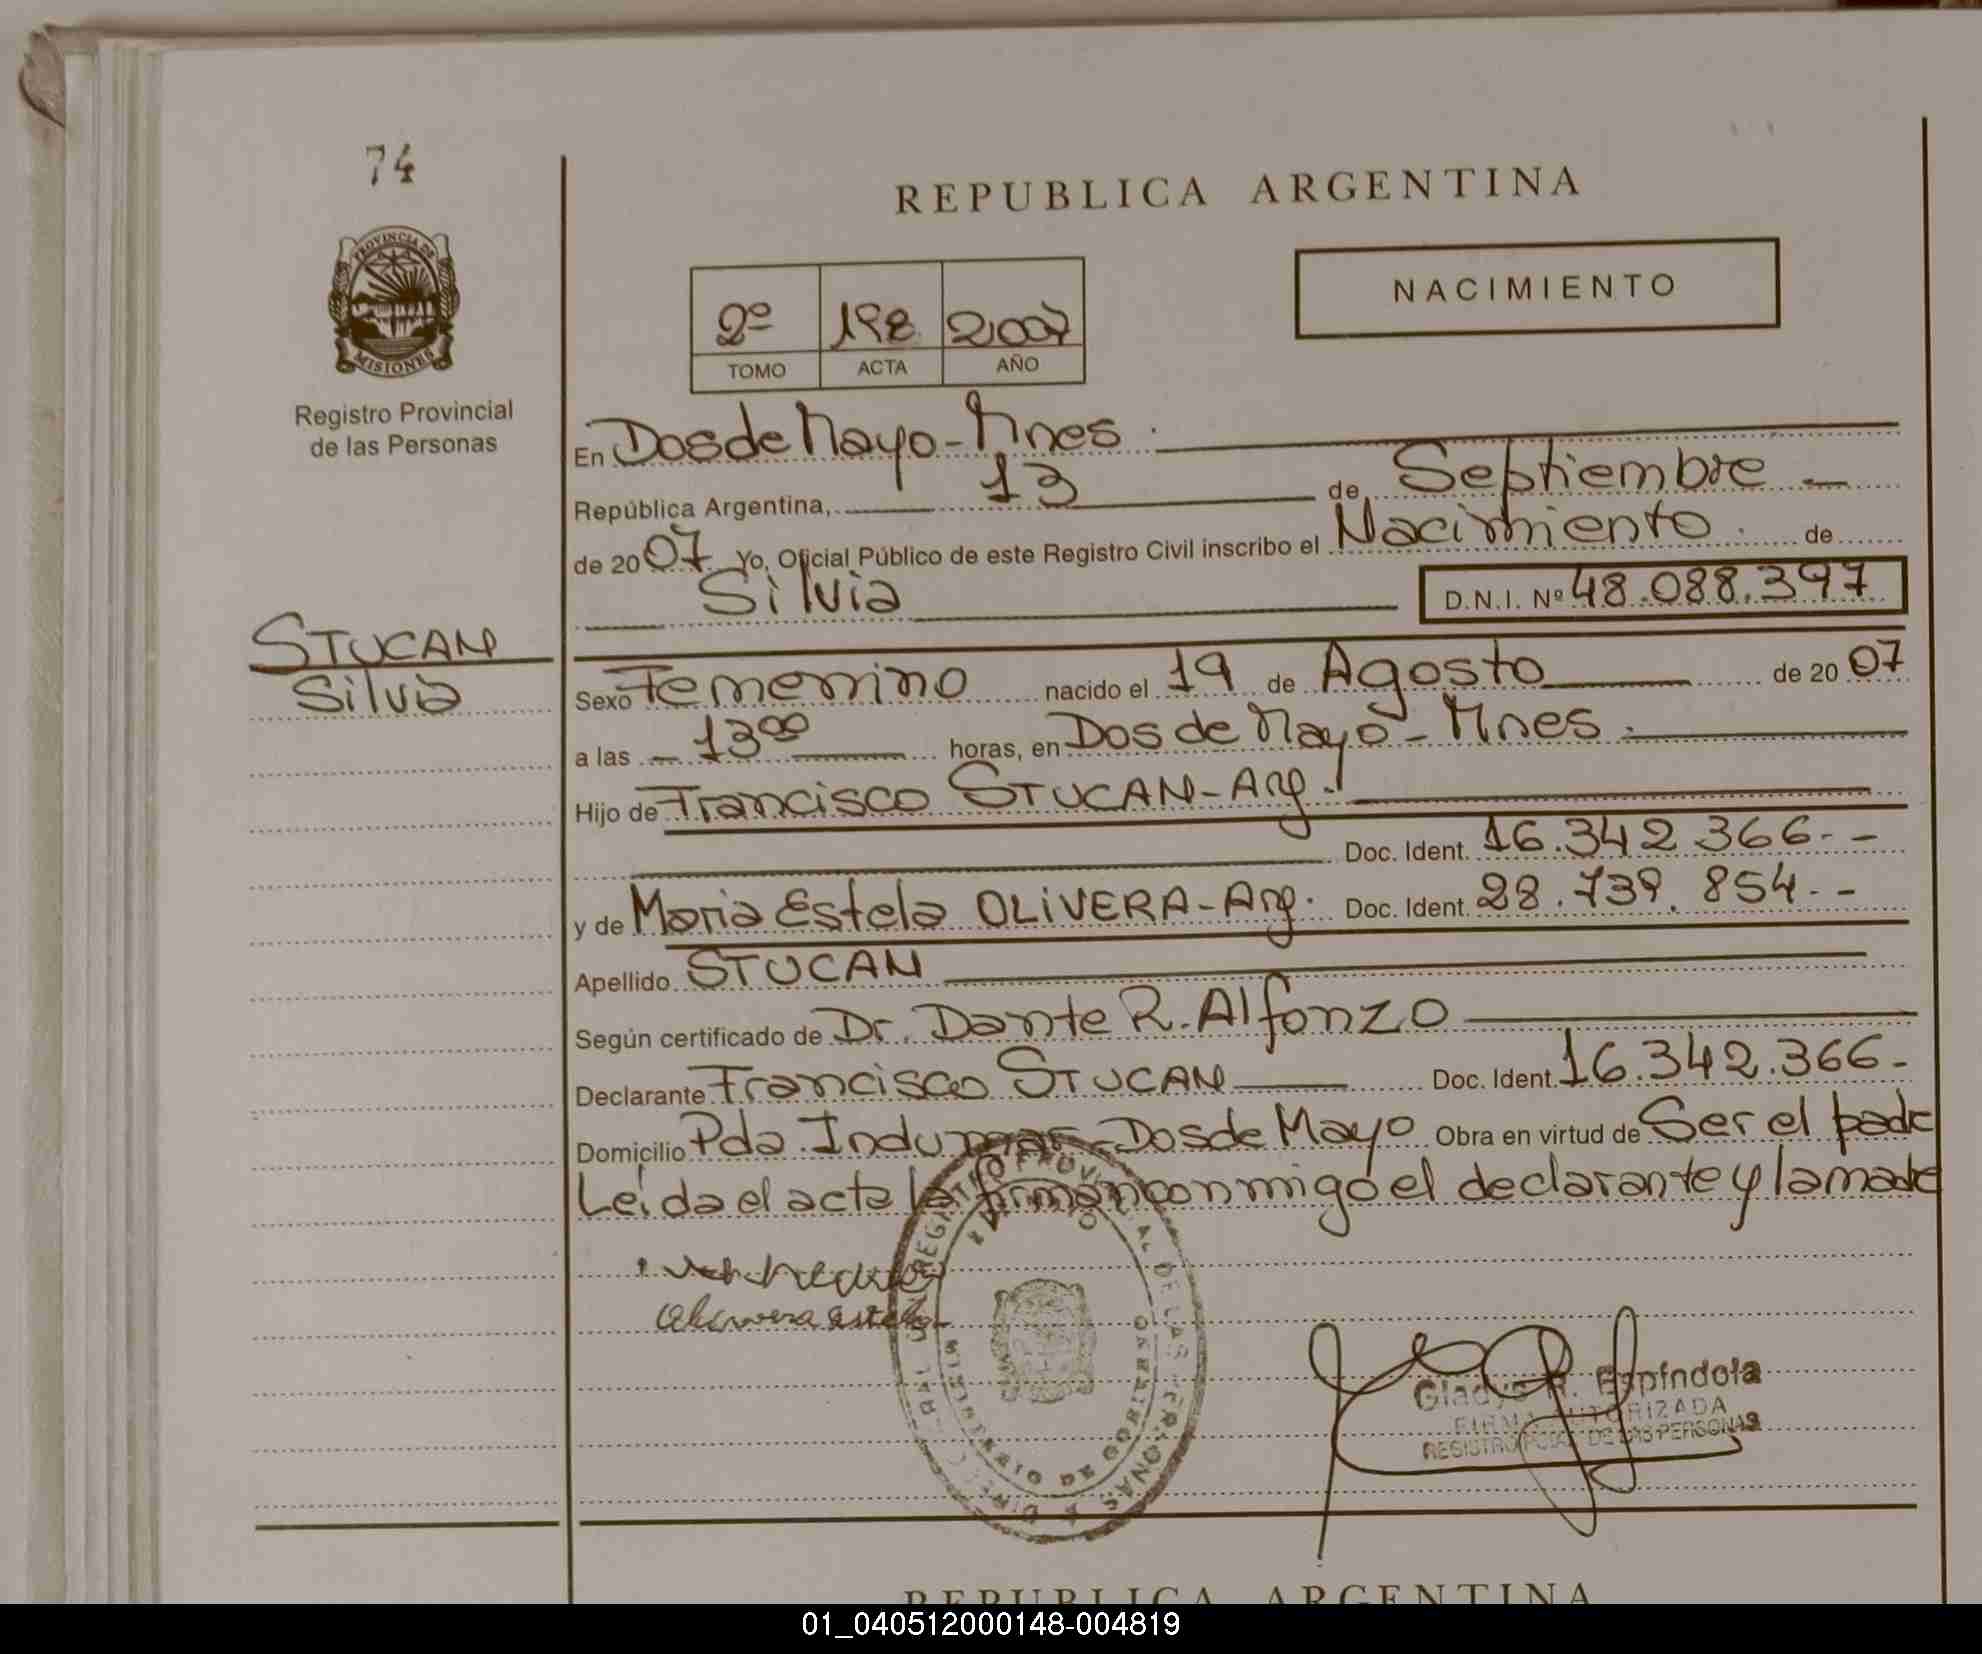 74
REPUBLICA ARGENTINA
PROVINCIA DE
MISIONES
Registro Provincial
de las Personas
NACIMIENTO
2º 198 2007
TOMO ACTA AÑO
En Dos de Mayo - Mnes.
República Argentina, 13 de Septiembre
de 2007 Yo, Oficial Público de este Registro Civil inscribo el Nacimiento de
Silvia D.N.I. Nº 48.088.397
STUCAN
Silvia
Sexo Femenino nacido el 19 de Agosto de 2007
a las 13⁰⁰ horas, en Dos de Mayo - Mnes.
Hijo de Francisco STUCAN - Arg.
Doc. Ident. 16.342.366.-
y de Maria Estela OLIVERA - Arg. Doc. Ident. 28.739.854.-
Apellido STUCAN
Según certificado de Dr. Dante R. Alfonzo
Declarante Francisco STUCAN Doc. Ident. 16.342.366-
Domicilio Pda. Indumar - Dos de Mayo Obra en virtud de Ser el padre
Leída el acta la firman conmigo el declarante y la madre
REGISTRO PROVINCIAL DE LAS PERSONAS
MINISTERIO DE GOBIERNO
Gladys R. Espíndola
FIRMA AUTORIZADA
REGISTRO PCIAL. DE LAS PERSONAS
REPUBLICA ARGENTINA
01_040512000148-004819